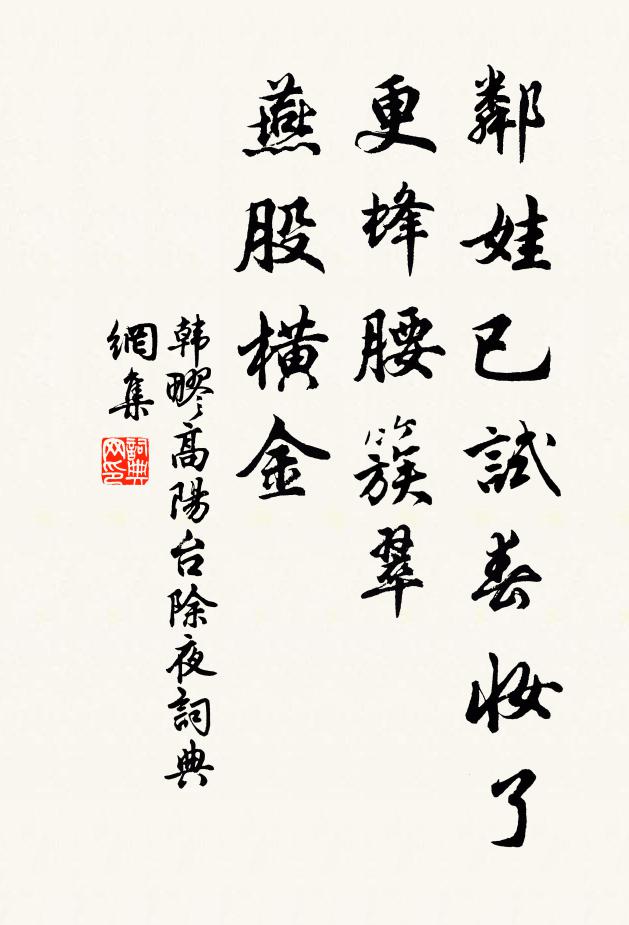 鄰娃已試春妝了
更蜂腰簇翠
燕股橫金
韩疁高陽台除夜詞典
網集
詞典
网印